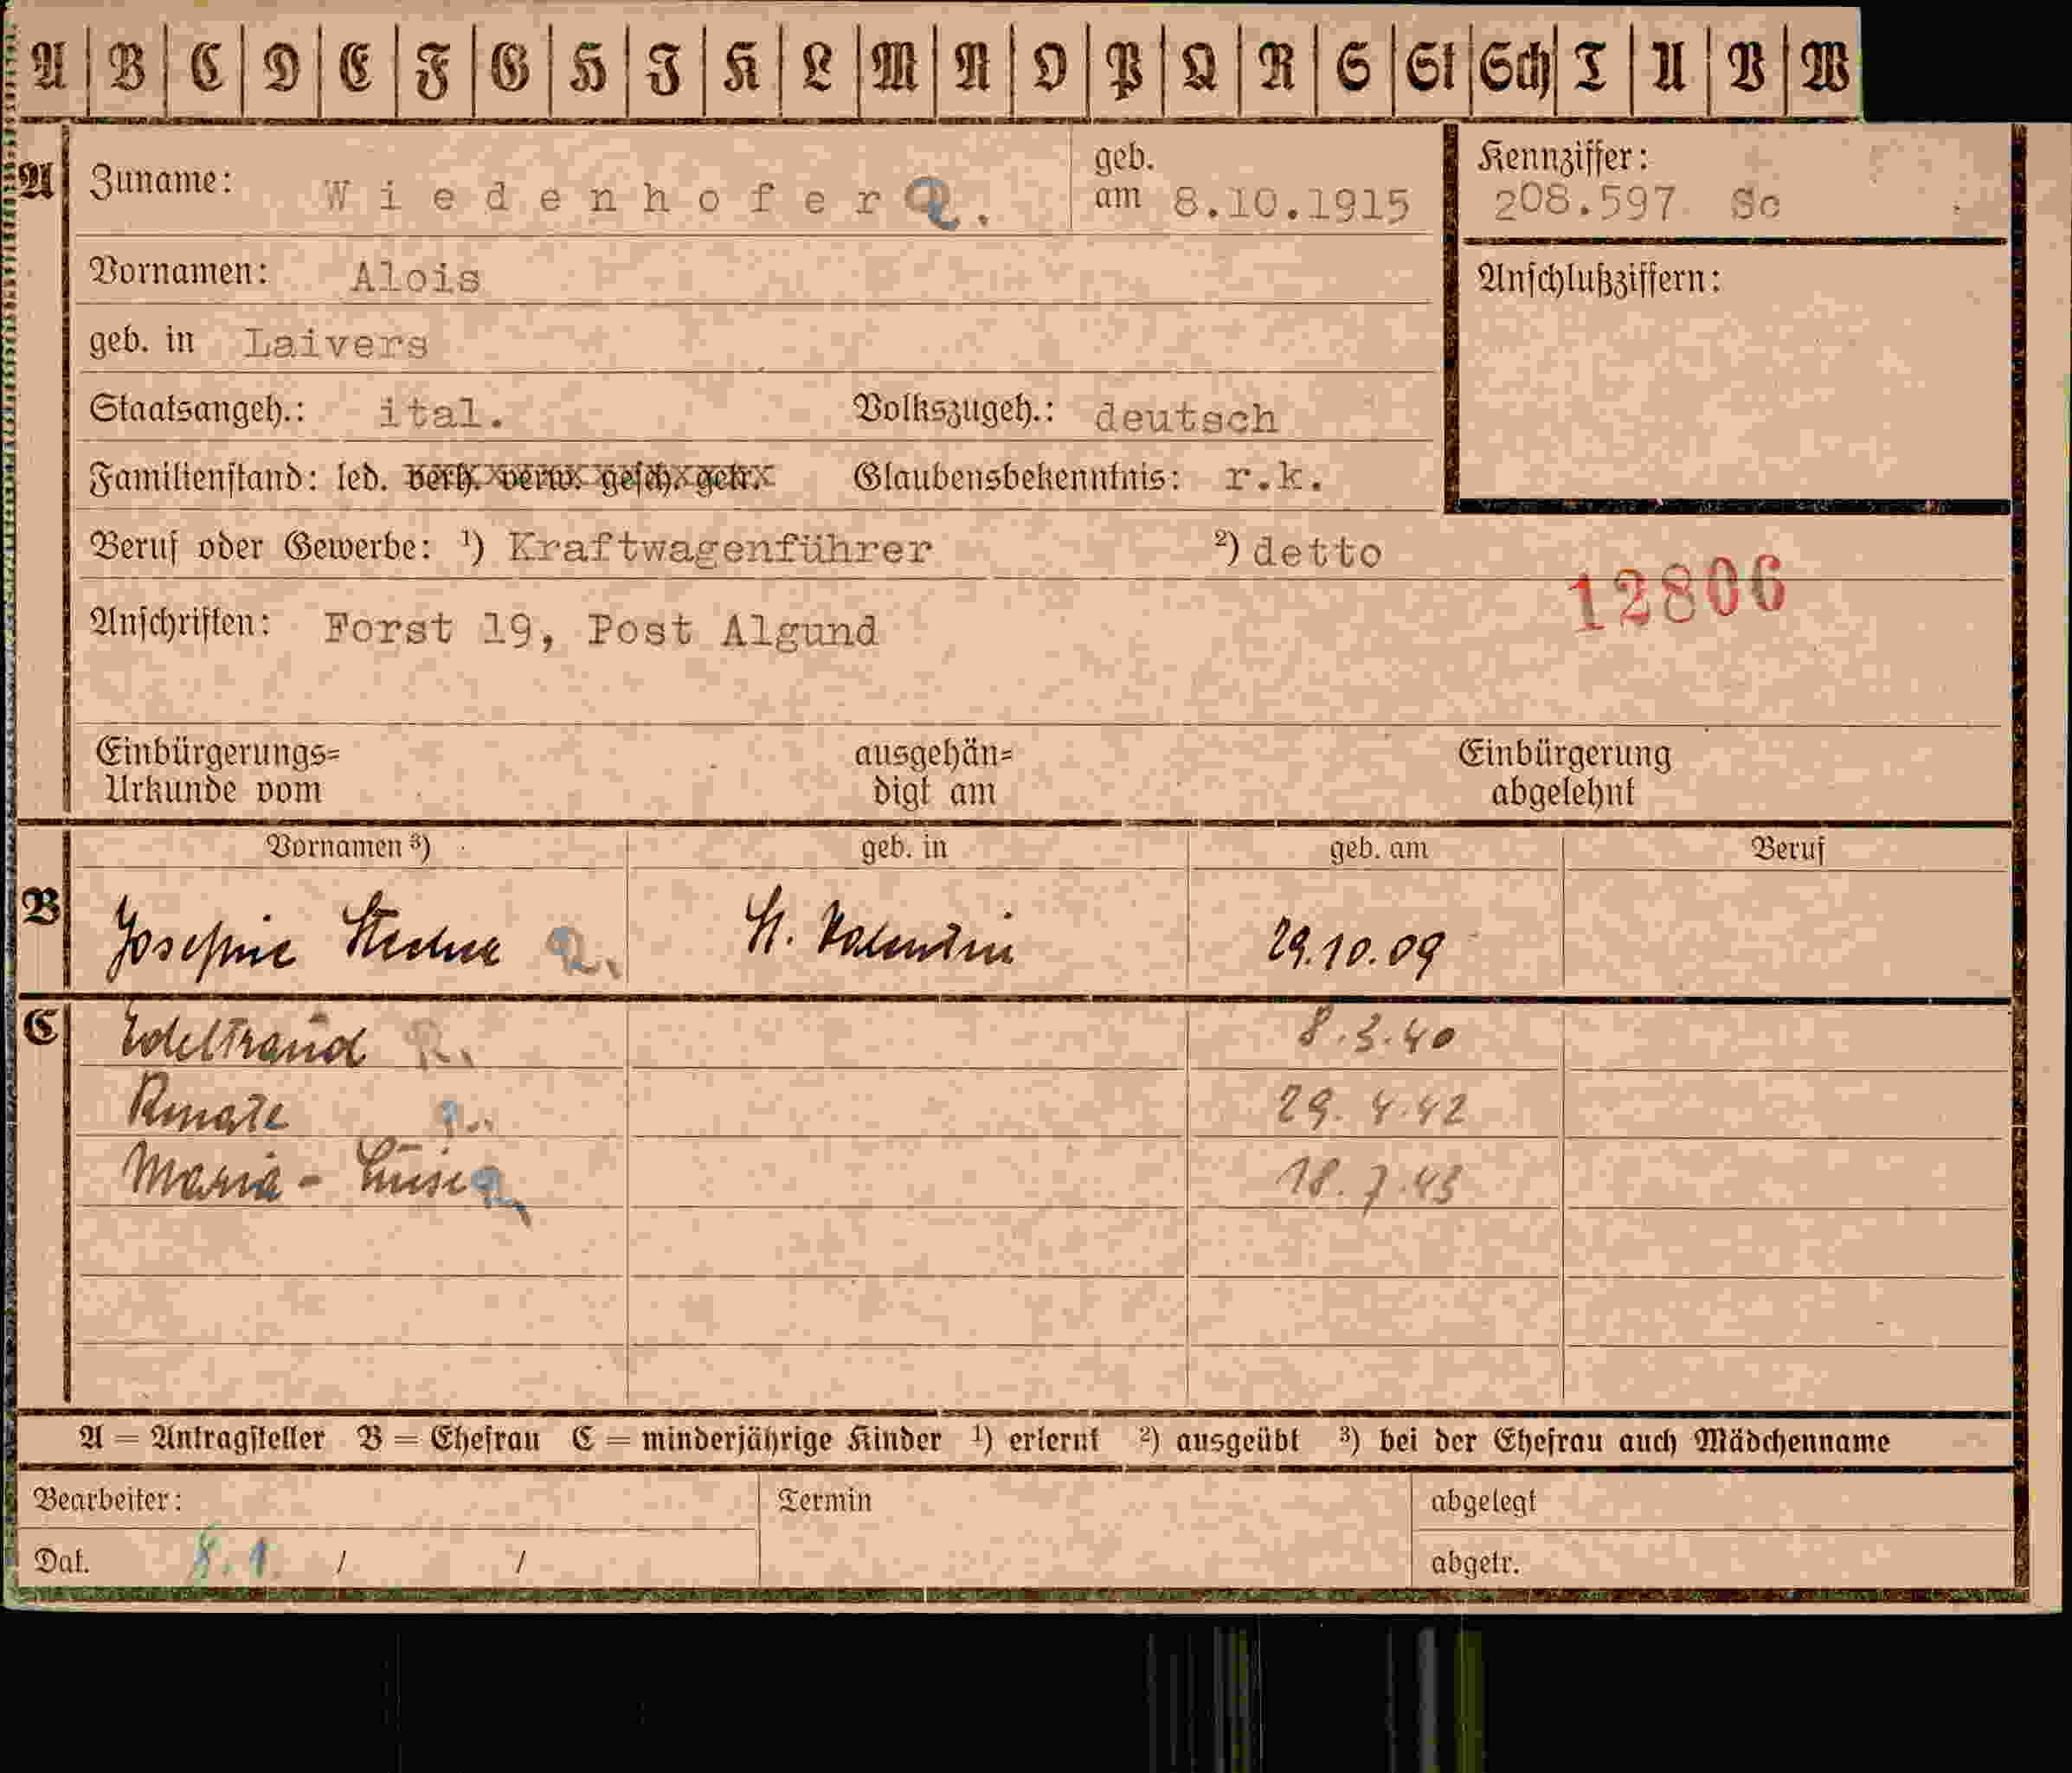 A B C D E F G H I K L M N O P Q R S St Sch T U V W
A Zuname: Wiedenhofer R. geb. am 8.10.1915 Kennziffer: 208.597 Sc
Vornamen: Alois Anschlußziffern:
geb. in Laivers
Staatsangeh.: ital. Volkszugeh.: deutsch
Familienstand: led. verh. verw. gesch. getr. Glaubensbekenntnis: r.k.
Beruf oder Gewerbe: ¹) Kraftwagenführer ²) detto
12806
Anschriften: Forst 19, Post Algund
Einbürgerungs= ausgehän= Einbürgerung
Urkunde vom digt am abgelehnt
Vornamen ³) geb. in geb. am Beruf
B Josefine R. St. Valentin 29.10.09
C Edeltraud R. 8.3.40
Renate R. 29.4.42
Maria - Luise R. 18.7.43
A = Antragsteller B = Ehefrau C = minderjährige Kinder ¹) erlernt ²) ausgeübt ³) bei der Ehefrau auch Mädchenname
Bearbeiter: Termin abgelegt
Dat. 8.1. / / abgetr.